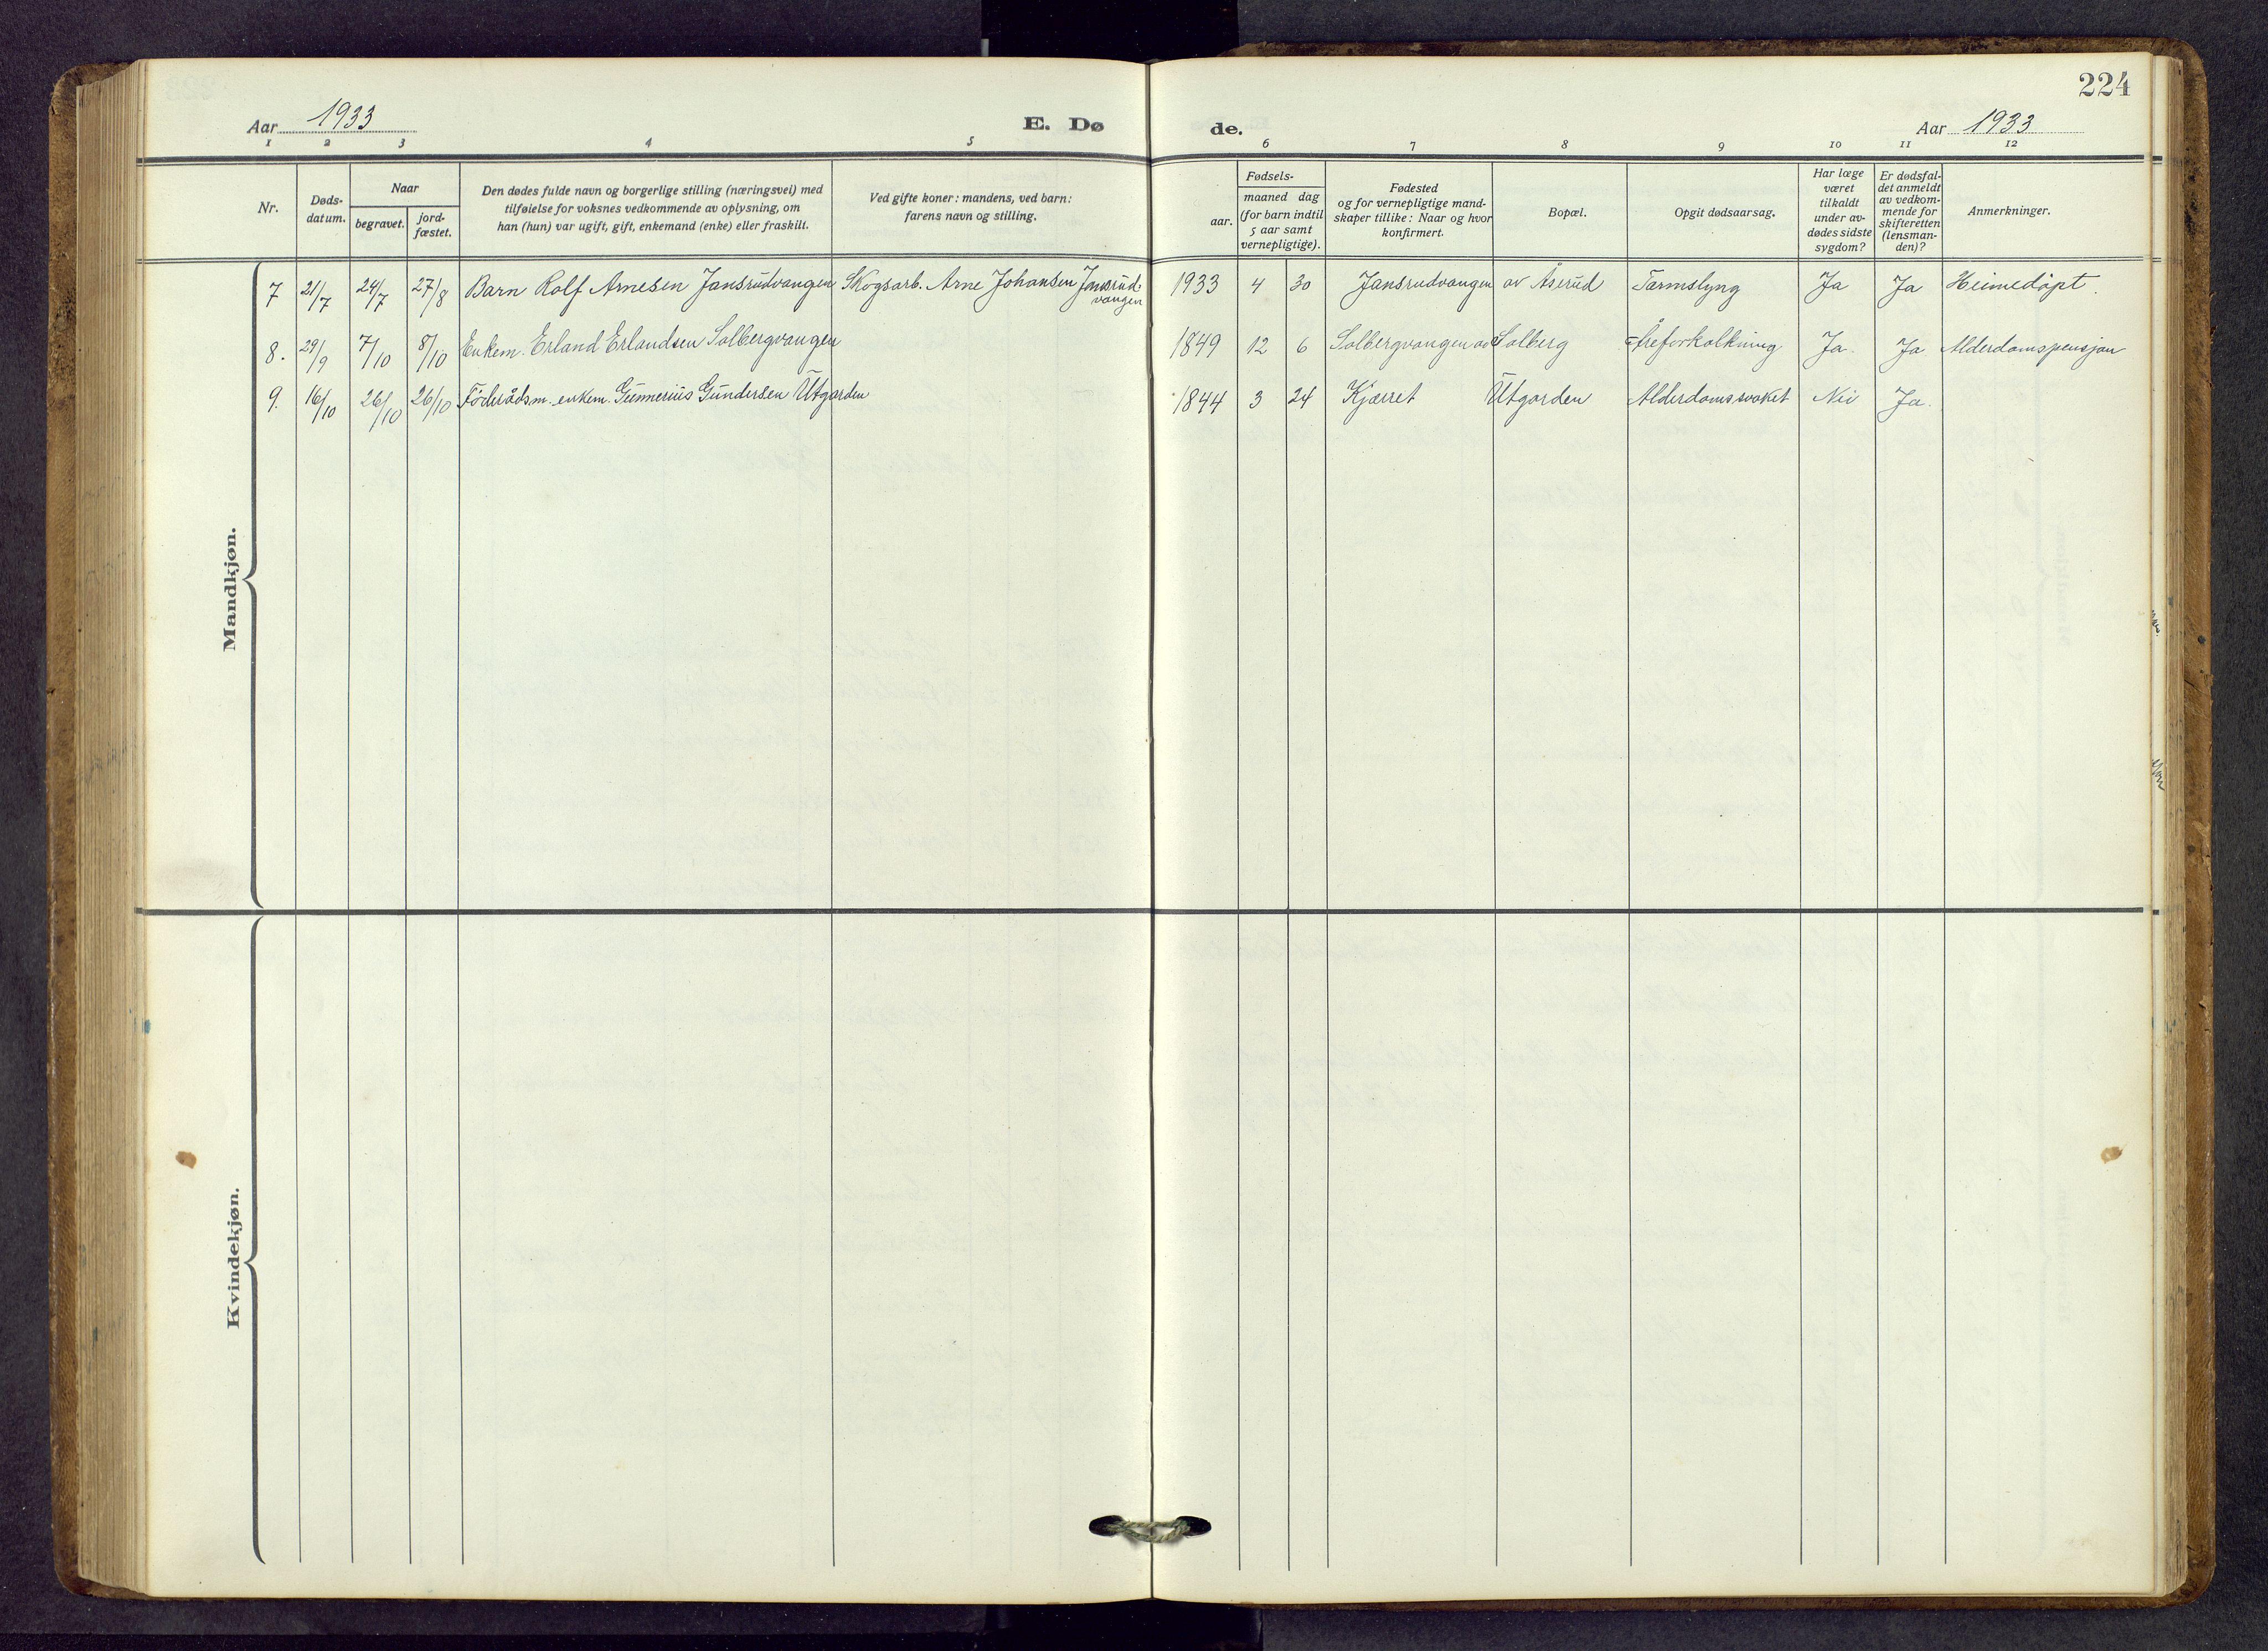 224
Aar 1933
E. Dø
de.
Aar 1933
1 2 3 4 5
6 7 8 9 10 11 12
Nr.
Døds-
datum.
Naar
begravet.
jord-
fæstet.
Den dødes fulde navn og borgerlige stilling (næringsvei) med
tilføielse for voksnes vedkommende av oplysning, om
han (hun) var ugift, gift, enkemand (enke) eller fraskilt.
Ved gifte koner: mandens, ved barn:
farens navn og stilling.
Fødsels-
aar.
maaned dag
(for barn indtil
5 aar samt
vernepligtige).
Fødested
og for vernepligtige mand-
skaper tillike: Naar og hvor
konfirmert.
Bopæl.
Opgit dødsaarsag.
Har læge
været
tilkaldt
under av-
dødes sidste
sygdom?
Er dødsfal-
det anmeldt
av vedkom-
mende for
skifteretten
(lensman-
den)?
Anmerkninger.
Mandkjøn.
7 21/7 24/7 27/8 Barn Rolf Arnesen Jansrudvangen Skogsarb. Arne Johansen Jansrud-
vangen
1933 4 30 Jansrudvangen av Åserud Tarmslyng Ja Ja Heimedøpt.
8. 29/9 7/10 8/10 Enkem. Erland Erlandsen Solbergvangen 1849 12 6 Solbergvangen av Solberg Åreforkalkning Ja. Ja Alderdomspensjon
9. 16/10 26/10 26/10 Föderådsm. enkem. Gunnerius Gundersen Utgarden 1844 3 24 Kjærret Utgarden Alderdomssvaket Nei Ja.
Kvindekjøn.